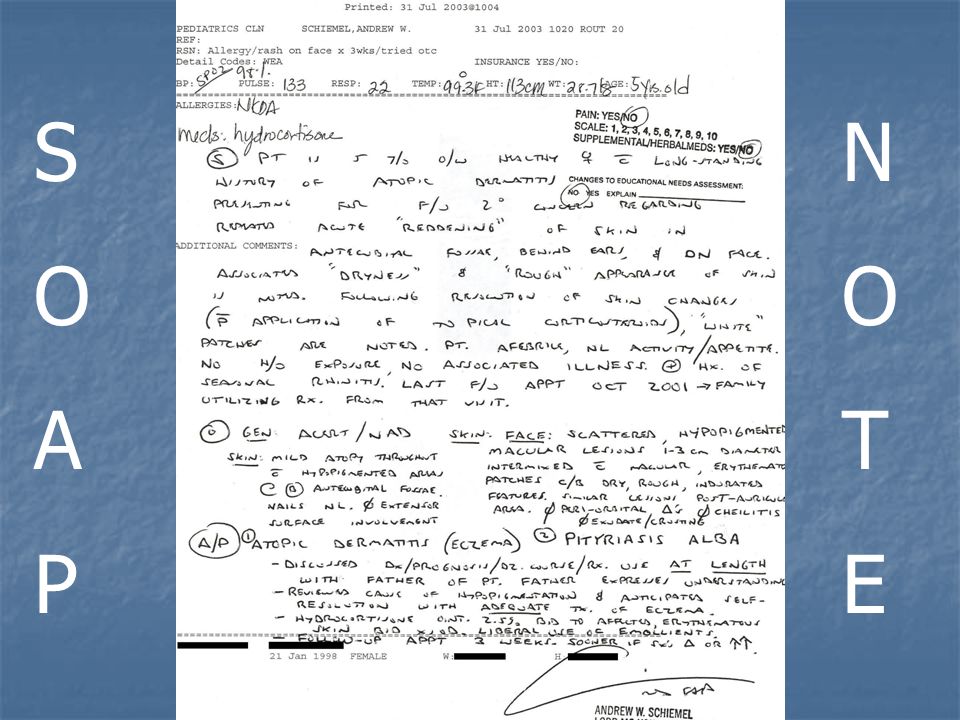 Printed: 31 Jul 2003@1004
PEDIATRICS CLN SCHIEMEL,ANDREW W. 31 Jul 2003 1020 ROUT 20
REF:
RSN: Allergy/rash on face x 3wks/tried otc
Detail Codes: WEA INSURANCE YES/NO:
SPO2 98%
BP: PULSE: 133 RESP: 22 TEMP: 99.3F HT: 113cm WT: AGE: 5yrs.old
ALLERGIES: NKDA
meds: hydrocortisone
PAIN: YES/NO
SCALE: 1, 2, 3, 4, 5, 6, 7, 8, 9, 10
SUPPLEMENTAL/HERBALMEDS: YES/NO
CHANGES TO EDUCATIONAL NEEDS ASSESSMENT:
NO YES EXPLAIN
S PT IS 5 Y/O O/W HEALTHY ♀ c̄ LONG-STANDING
HISTORY OF ATOPIC DERMATITIS
PRESENTING FOR F/U 2° CONCERN REGARDING
REPEATED ACUTE "REDDENING" OF SKIN IN
ADDITIONAL COMMENTS:
ANTECUBITAL FOSSAE, BEHIND EARS, & ON FACE.
ASSOCIATED "DRYNESS" & "ROUGH" APPEARANCE OF SKIN
IS NOTED. FOLLOWING RESOLUTION OF SKIN CHANGES
(p̄ APPLICATION OF TOPICAL CORTICOSTEROIDS), "WHITE"
PATCHES ARE NOTED. PT. AFEBRILE, NL ACTIVITY/APPETITE.
NO H/O EXPOSURE, NO ASSOCIATED ILLNESS. ⊕ HX. OF
SEASONAL RHINITIS. LAST F/U APPT OCT 2001 → FAMILY
UTILIZING RX. FROM THAT VISIT.
O GEN: ALERT/NAD
SKIN: MILD ATOPY THROUGHOUT
c̄ HYPOPIGMENTED AREAS
B ANTECUBITAL FOSSAE.
NAILS NL. ∅ EXTENSOR
SURFACE INVOLVEMENT
SKIN: FACE: SCATTERED, HYPOPIGMENTED
MACULAR LESIONS 1-3 cm DIAMETER
INTERMIXED c̄ MACULAR, ERYTHEMATO
PATCHES C/B DRY, ROUGH, INDURATED
FEATURES. SIMILAR LESIONS POST-AURICULA
AREA. ∅ PERI-ORBITAL Δ's ∅ CHEILITIS
∅ EXUDATE/CRUSTING
A/P 1 ATOPIC DERMATITIS (ECZEMA) 2 PITYRIASIS ALBA
- DISCUSSED DX/PROGNOSIS/DZ. COURSE/RX. USE AT LENGTH
WITH FATHER OF PT. FATHER EXPRESSES UNDERSTANDING
- REVIEWED CAUSE OF HYPOPIGMENTATION & ANTICIPATED SELF-
RESOLUTION WITH ADEQUATE TX. OF ECZEMA.
- HYDROCORTISONE OINT. 2.5% BID TO AFFECTED, ERYTHEMATOUS
SKIN BID LIBERAL USE OF EMOLLIENTS.
- FOLLOW-UP APPT 3 WEEKS. SOONER IF SX'S Δ OR ↑↑
21 Jan 1998 FEMALE W: H:
ANDREW W. SCHIEMEL
S
O
A
P
N
O
T
E